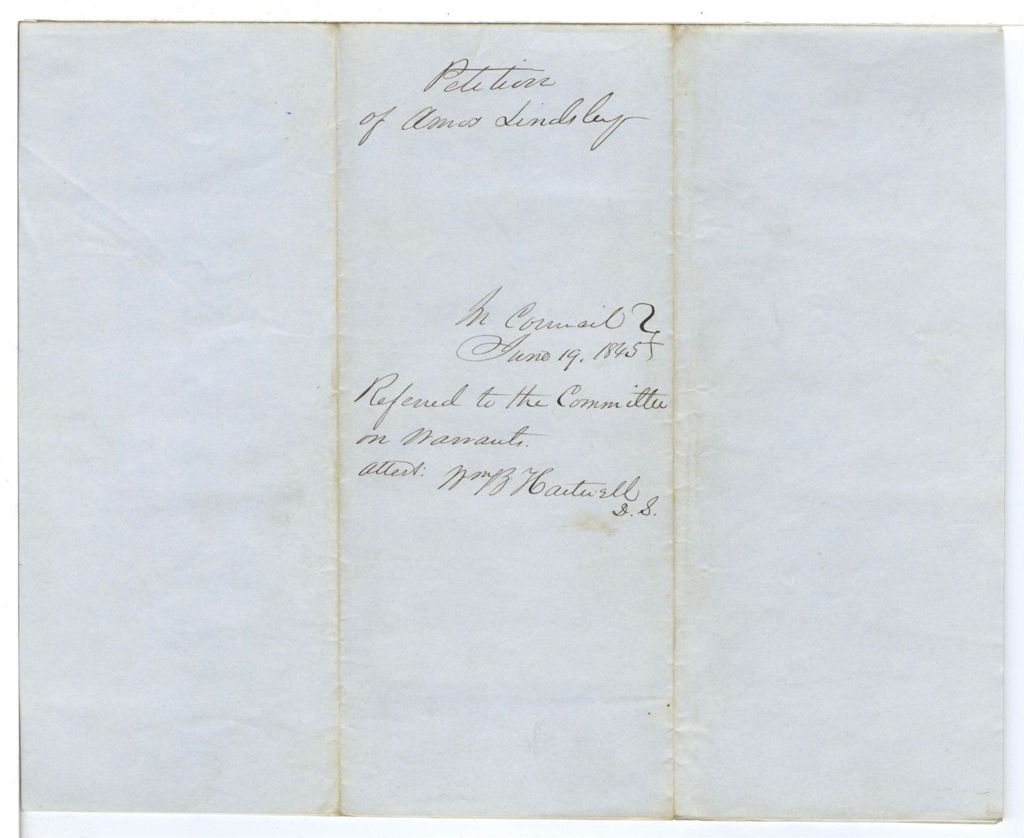 Petition
of Amos Lindsley
In Council }
June 19. 1845 }
Referred to the Committee
on Warrants.
attest: Wm B Hartwell
D. S.